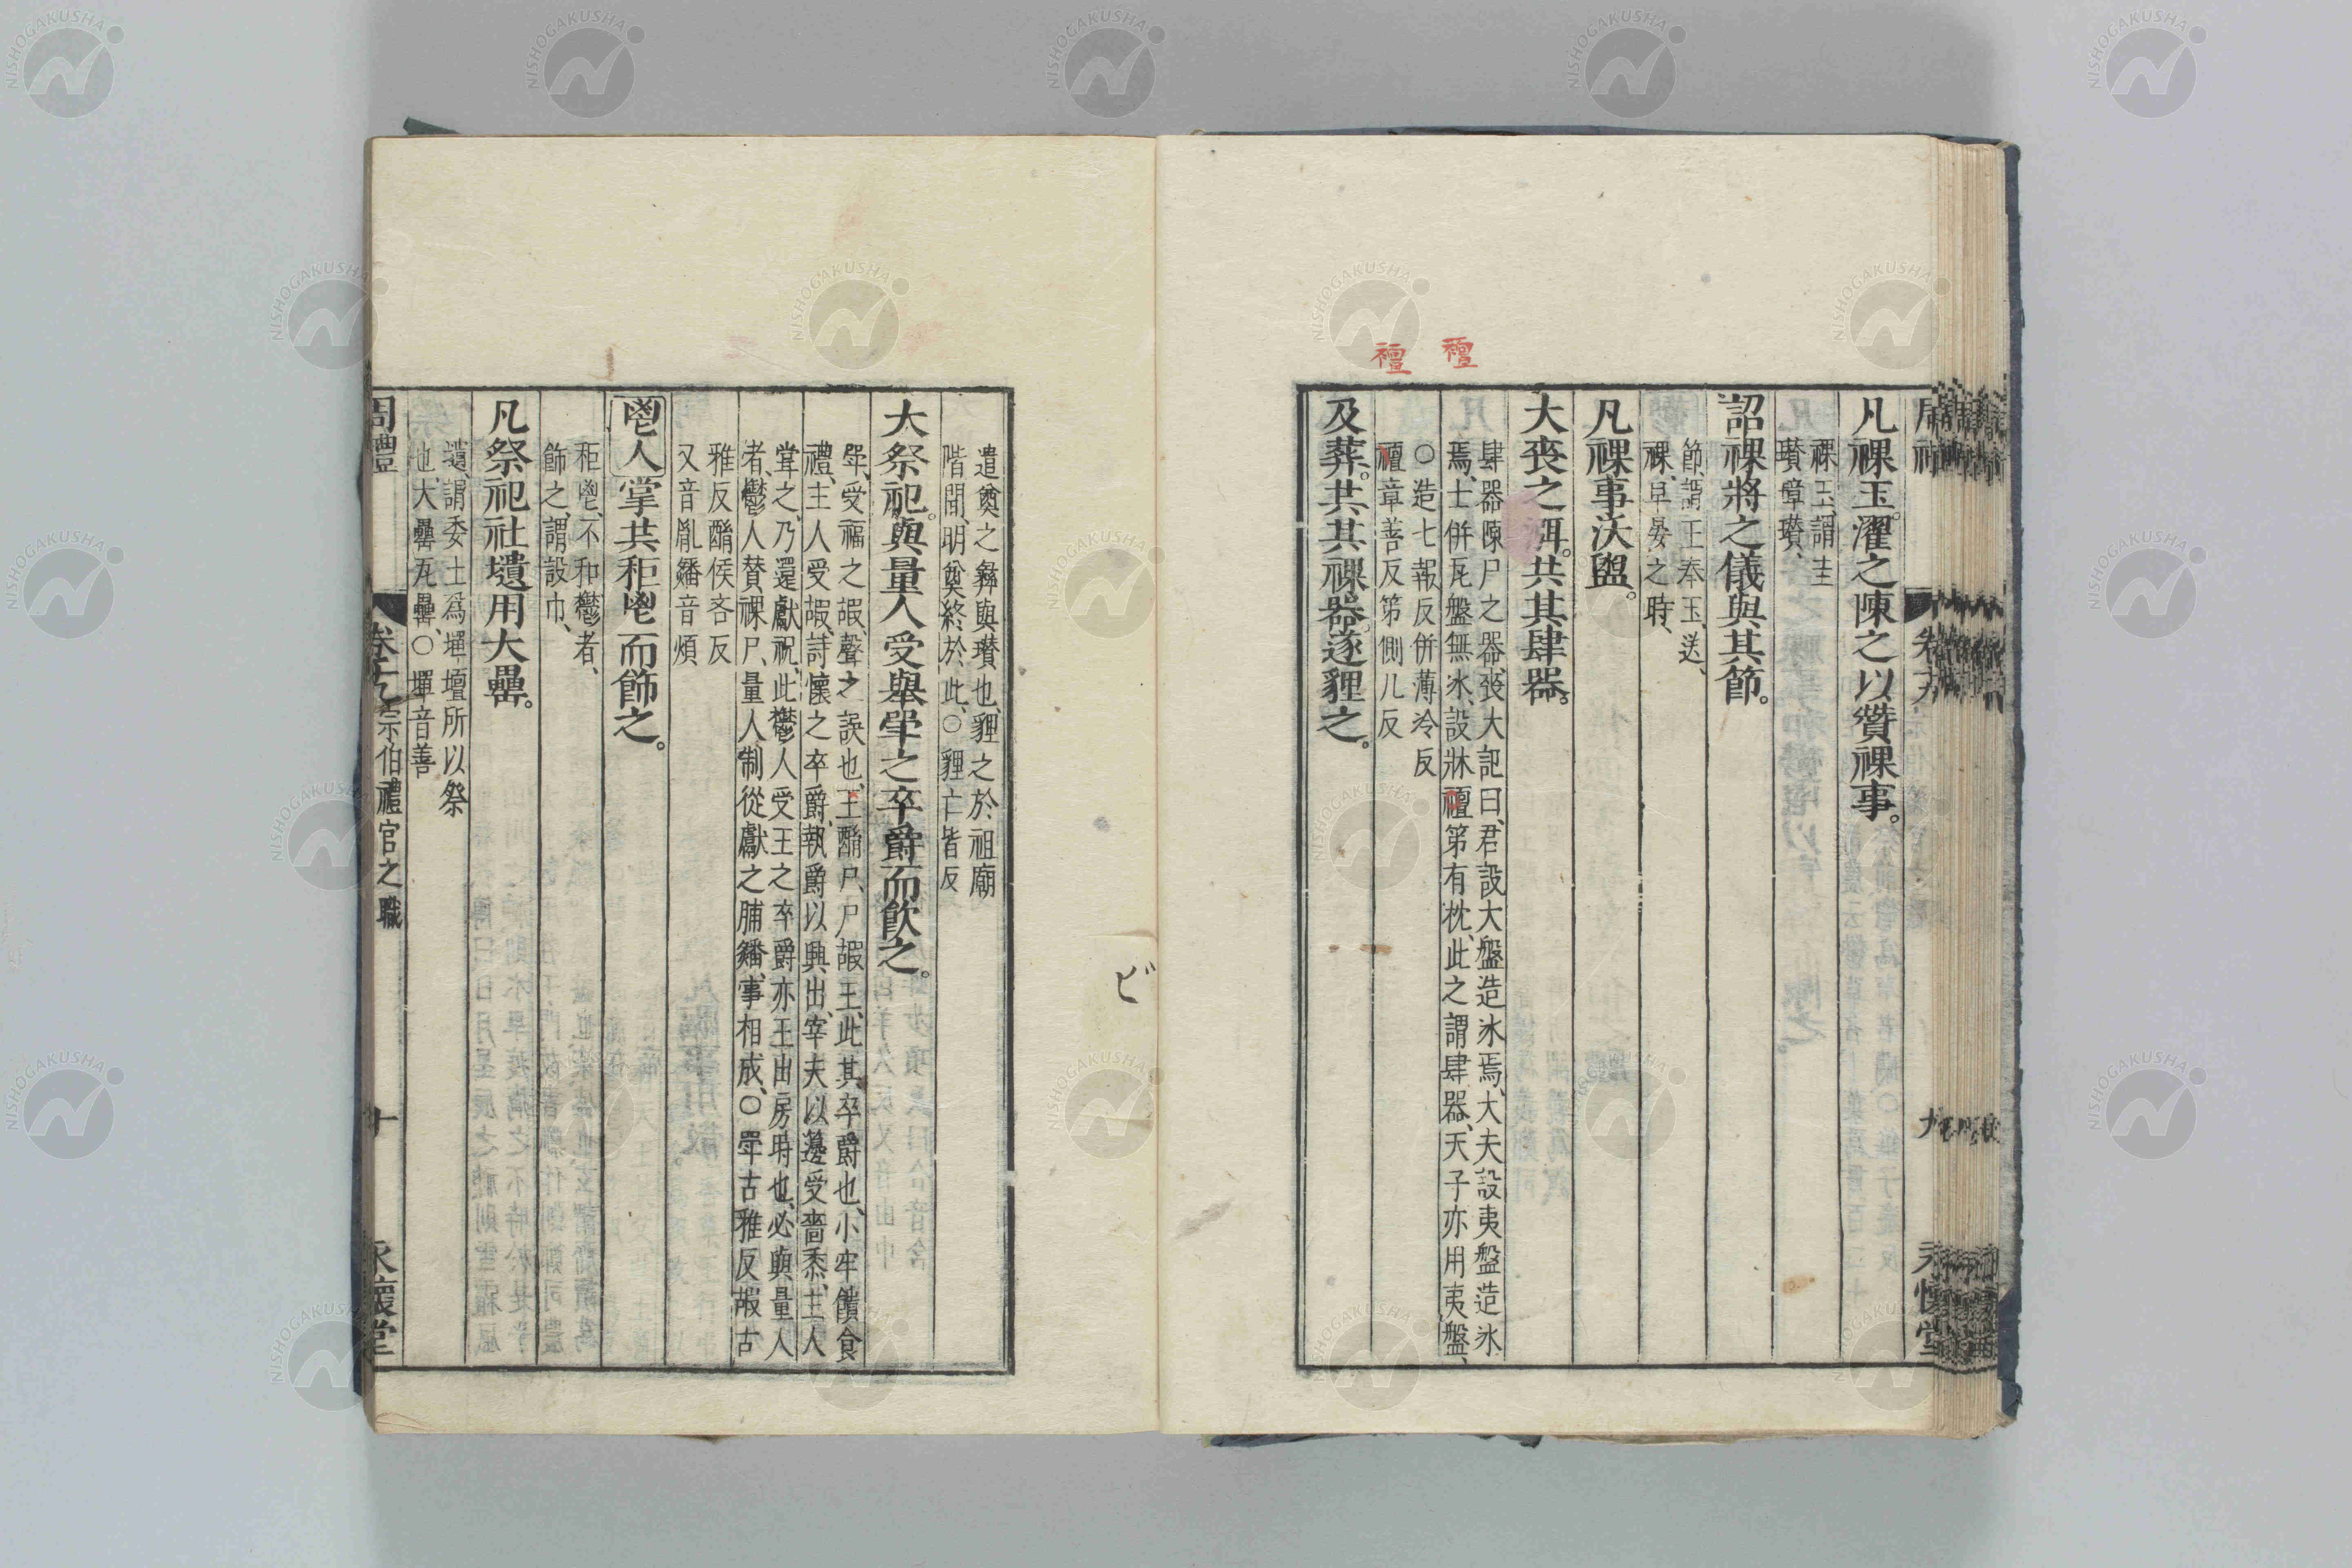 凡祼玉濯之陳之以贊祼事。
祼玉、謂圭
瓚璋瓚、
詔祼將之儀與其節。
節、謂王奉玉、送
祼、早晏之時、
凡祼事沃盥。
大喪之渳。共其肆器。
肆器陳尸之器、喪大記曰、君設大盤造冰焉、大夫設夷盤造冰
焉、士併瓦盤無冰、設牀襢第有枕、此之謂肆器、天子亦用夷盤、
○造七報反併薄冷反
襢章善反第側几反
及葬。共其祼器。遂貍之。
襢
襢
遣奠之彝與瓚也、貍之於祖廟
階間、明奠終於此、○貍亡皆反
大祭祀。與量人受舉斝之卒爵而飲之。
斝、受福之嘏、聲之誤也、王酳尸、尸嘏王、此其卒爵也、小牢饋食
禮、主人受嘏、詩懷之卒爵、執爵以興出、宰夫以籩受嗇黍、主人
嘗之、乃還獻祝、此鬱人受王之卒爵亦王出房時也、必與量人
者、鬱人贊祼尸、量人、制從獻之脯燔、事相成、○斝古雅反嘏古
雅反酳侯吝反
又音胤燔音煩
鬯人掌共秬鬯而飾之。
秬鬯、不和鬱者、
飾之、謂設巾、
凡祭祀社壝用大罍。
壝、謂委土爲墠壇所以祭
也、大罍瓦罍、○墠音善
周禮 卷十九 宗伯禮官之職 十 永懷堂
ビ
NISHOGAKUSHA